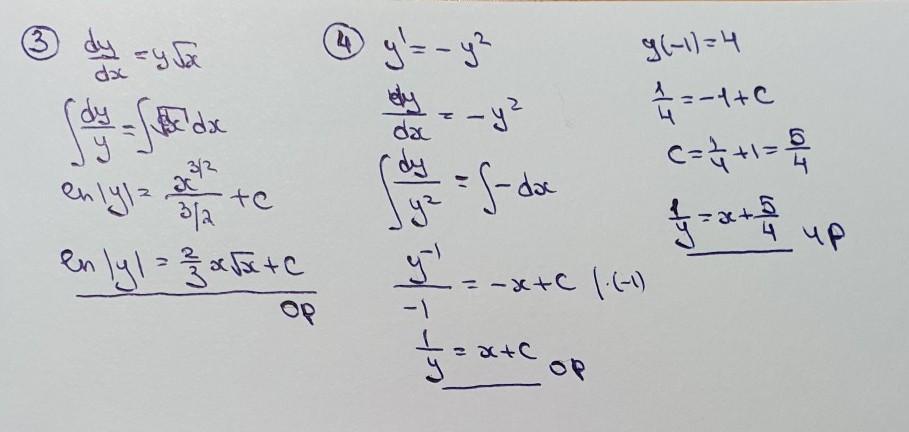 ③ dy/dx = y√x
∫ dy/y = ∫ √x dx
ln|y| = x^(3/2)/(3/2) + C
ln|y| = 2/3 x√x + C
OP
④ y' = -y²
dy/dx = -y²
∫ dy/y² = ∫ -dx
y⁻¹/-1 = -x + C /·(-1)
1/y = x + C OP
y(-1) = 4
1/4 = -1 + C
C = 1/4 + 1 = 5/4
1/y = x + 5/4 ЧР